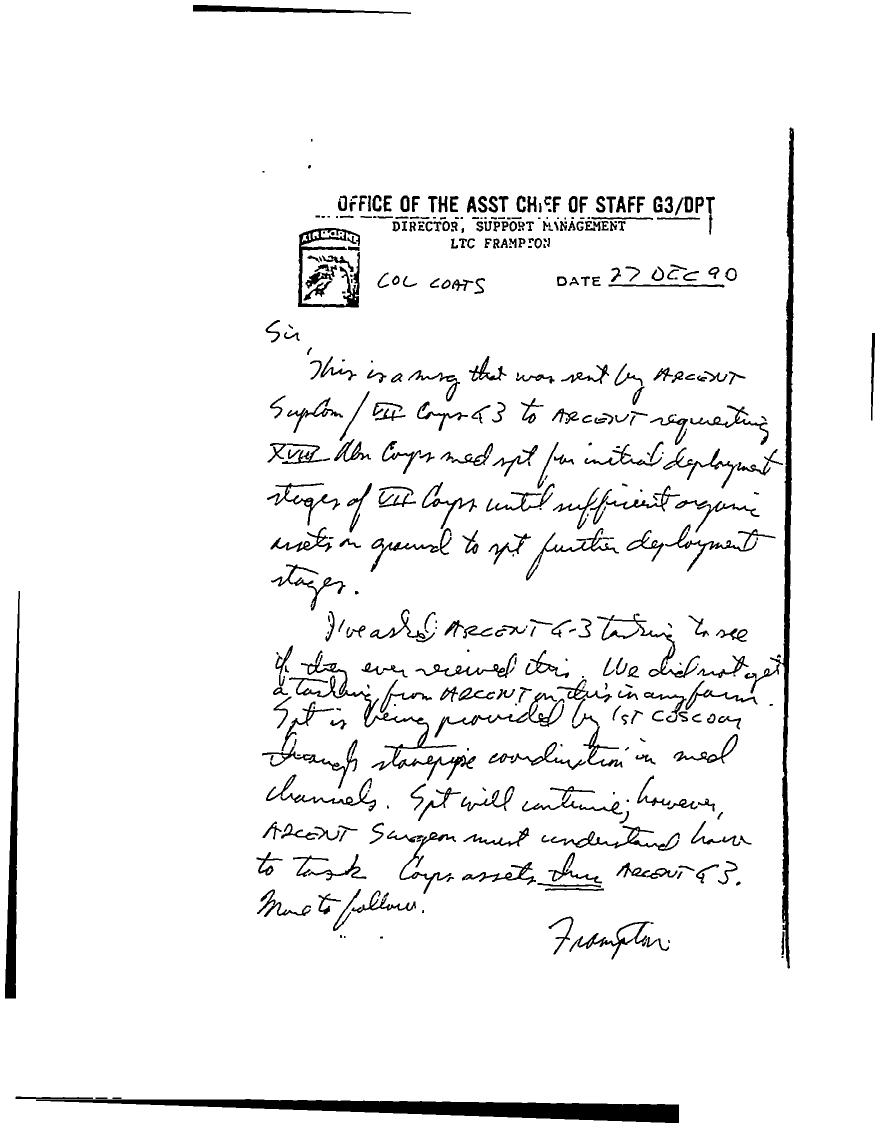 OFFICE OF THE ASST CHIEF OF STAFF G3/DPT
DIRECTOR, SUPPORT MANAGEMENT
LTC FRAMPTON
AIRBORNE
COL COATS DATE 27 DEC 90
Sir,
This is a msg that was sent by ARCENT
SupCom / VII Corps G3 to ARCENT requesting
XVIII Abn Corps med spt for initial deployment
stages of VII Corps until sufficient organic
assets on ground to spt further deployment
stages.
I've asked ARCENT G-3 tasking to see
if they ever received this. We did not get
a tasking from ARCENT on this in any form.
Spt is being provided by 1ST COSCOM
through stovepipe coordination in med
channels. Spt will continue; however,
ARCENT Surgeon must understand how
to task Corps assets thru ARCENT G3.
More to follow.
Frampton